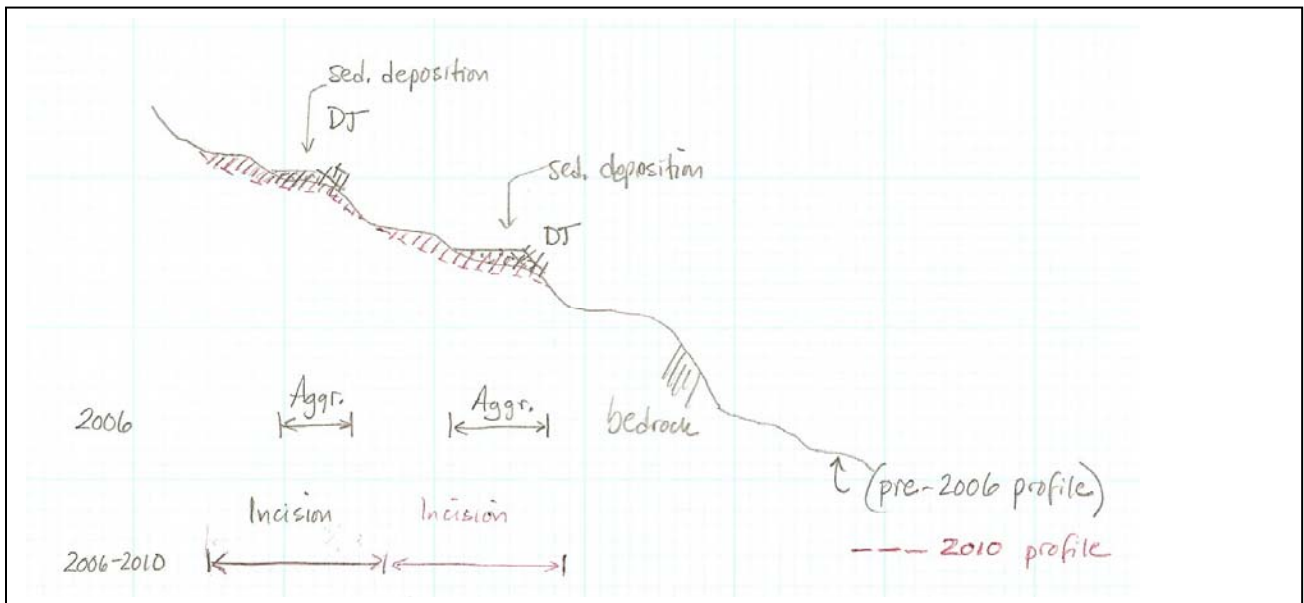 sed. deposition
DJ
sed. deposition
DJ
2006
Aggr.
Aggr.
bedrock
(pre-2006 profile)
Incision
Incision
2006-2010
--- 2010 profile